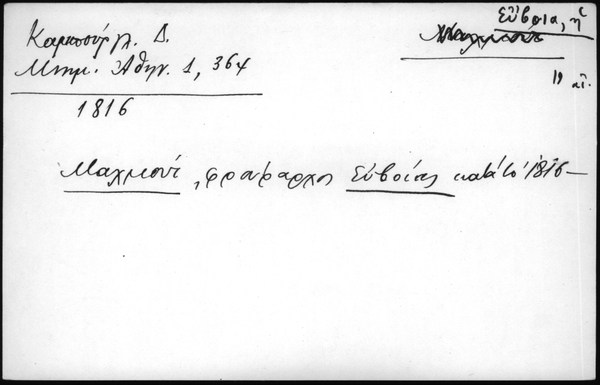 Καμπούργλ. Δ.
Μνημ. Ἀθην. 1, 364
1816
Εὔβοια, ἡ
Μαχμούτ
19 αἰ.
Μαχμούτ, φρούραρχος Εὐβοίας κατὰ τὸ 1816 —